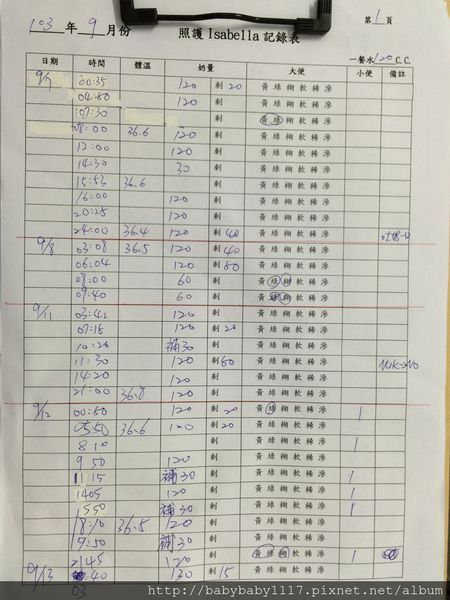 103 年 9 月份 照護 Isabella 記錄表 第 1 頁
一餐水 120 C.C.
日期 時間 體溫 奶量 大便 小便 備註
9/7 00:35 120 剩 20 黃 綠 糊 軟 稀 滲
04:50 120 剩 黃 綠 糊 軟 稀 滲
07:30 剩 黃 綠 糊 軟 稀 滲
08:00 36.6 120 剩 黃 綠 糊 軟 稀 滲
12:00 120 剩 黃 綠 糊 軟 稀 滲
14:30 30 剩 黃 綠 糊 軟 稀 滲
15:53 36.6 剩 黃 綠 糊 軟 稀 滲
16:00 120 剩 黃 綠 糊 軟 稀 滲
20:25 120 剩 黃 綠 糊 軟 稀 滲
24:00 36.4 120 剩 40 黃 綠 糊 軟 稀 滲
9/8 03:08 36.5 120 剩 40 黃 綠 糊 軟 稀 滲
06:04 120 剩 80 黃 綠 糊 軟 稀 滲
08:00 60 剩 黃 綠 糊 軟 稀 滲
09:40 60 剩 黃 綠 糊 軟 稀 滲
9/11 03:42 120 剩 黃 綠 糊 軟 稀 滲
07:18 120 剩 20 黃 綠 糊 軟 稀 滲
10:20 補30 剩 黃 綠 糊 軟 稀 滲
11:30 120 剩 60 黃 綠 糊 軟 稀 滲
14:20 120 剩 黃 綠 糊 軟 稀 滲
21:00 36.8 120 剩 黃 綠 糊 軟 稀 滲
9/12 00:50 120 剩 20 黃 綠 糊 軟 稀 滲 1
0550 36.6 120 剩 20 黃 綠 糊 軟 稀 滲
810 剩 黃 綠 糊 軟 稀 滲 1
9 50 120 剩 黃 綠 糊 軟 稀 滲
11 15 補30 剩 黃 綠 糊 軟 稀 滲 1
1405 120 剩 黃 綠 糊 軟 稀 滲 1
1550 補30 剩 黃 綠 糊 軟 稀 滲 1
18:10 36.5 120 剩 黃 綠 糊 軟 稀 滲
19:50 補30 剩 黃 綠 糊 軟 稀 滲
2145 120 剩 黃 綠 糊 軟 稀 滲 1
9/13 :40 130 剩 15 黃 綠 糊 軟 稀 滲
03
http://babybaby1117.pixnet.net/album